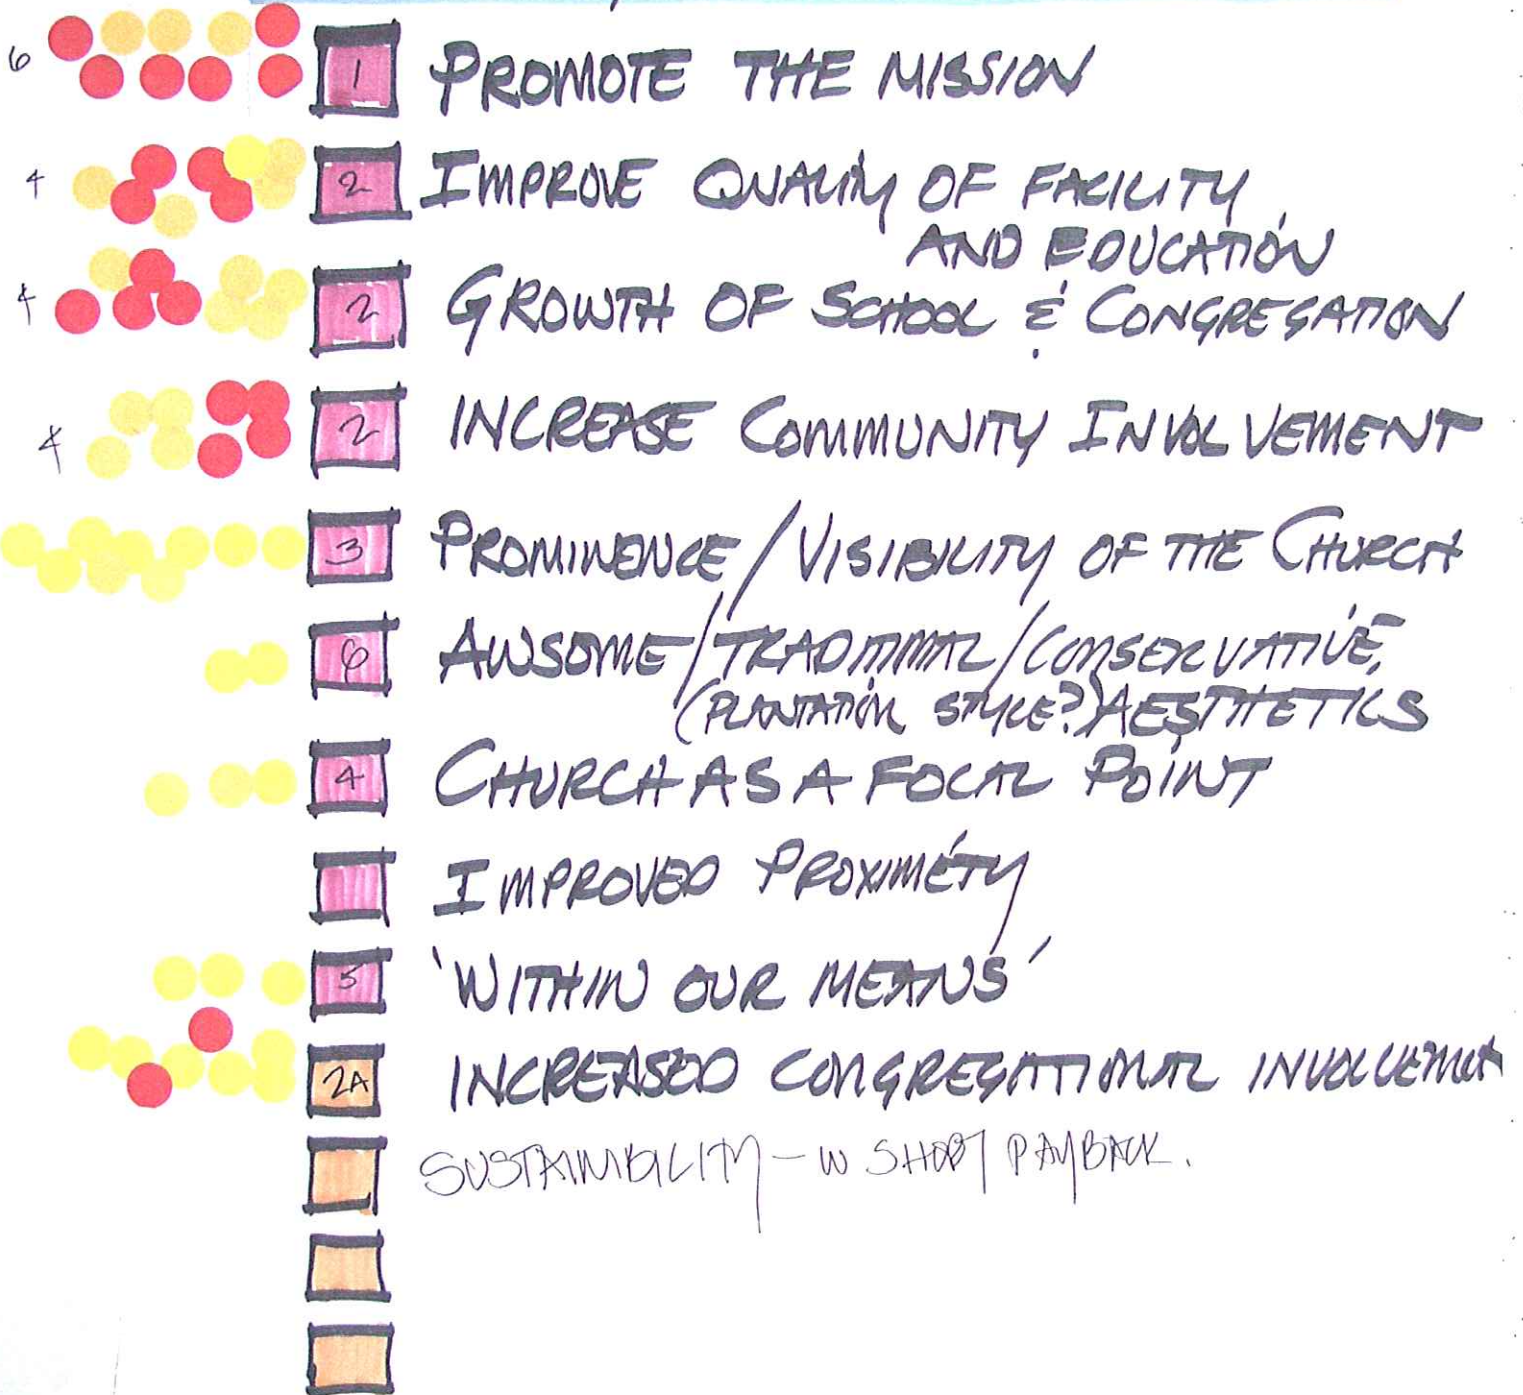 6 1 PROMOTE THE MISSION
4 2 IMPROVE QUALITY OF FACILITY
AND EDUCATION
4 2 GROWTH OF SCHOOL & CONGREGATION
4 2 INCREASE COMMUNITY INVOLVEMENT
3 PROMINENCE / VISIBILITY OF THE CHURCH
6 AWSOME / TRADITIONAL / CONSERVATIVE,
(PLANTATION STYLE?) AESTHETICS
4 CHURCH AS A FOCAL POINT
IMPROVED PROXIMETY
5 'WITHIN OUR MEANS'
2A INCREASED CONGREGATIONAL INVOLVEMENT
SUSTAINIBILITY - W SHORT PAYBACK.